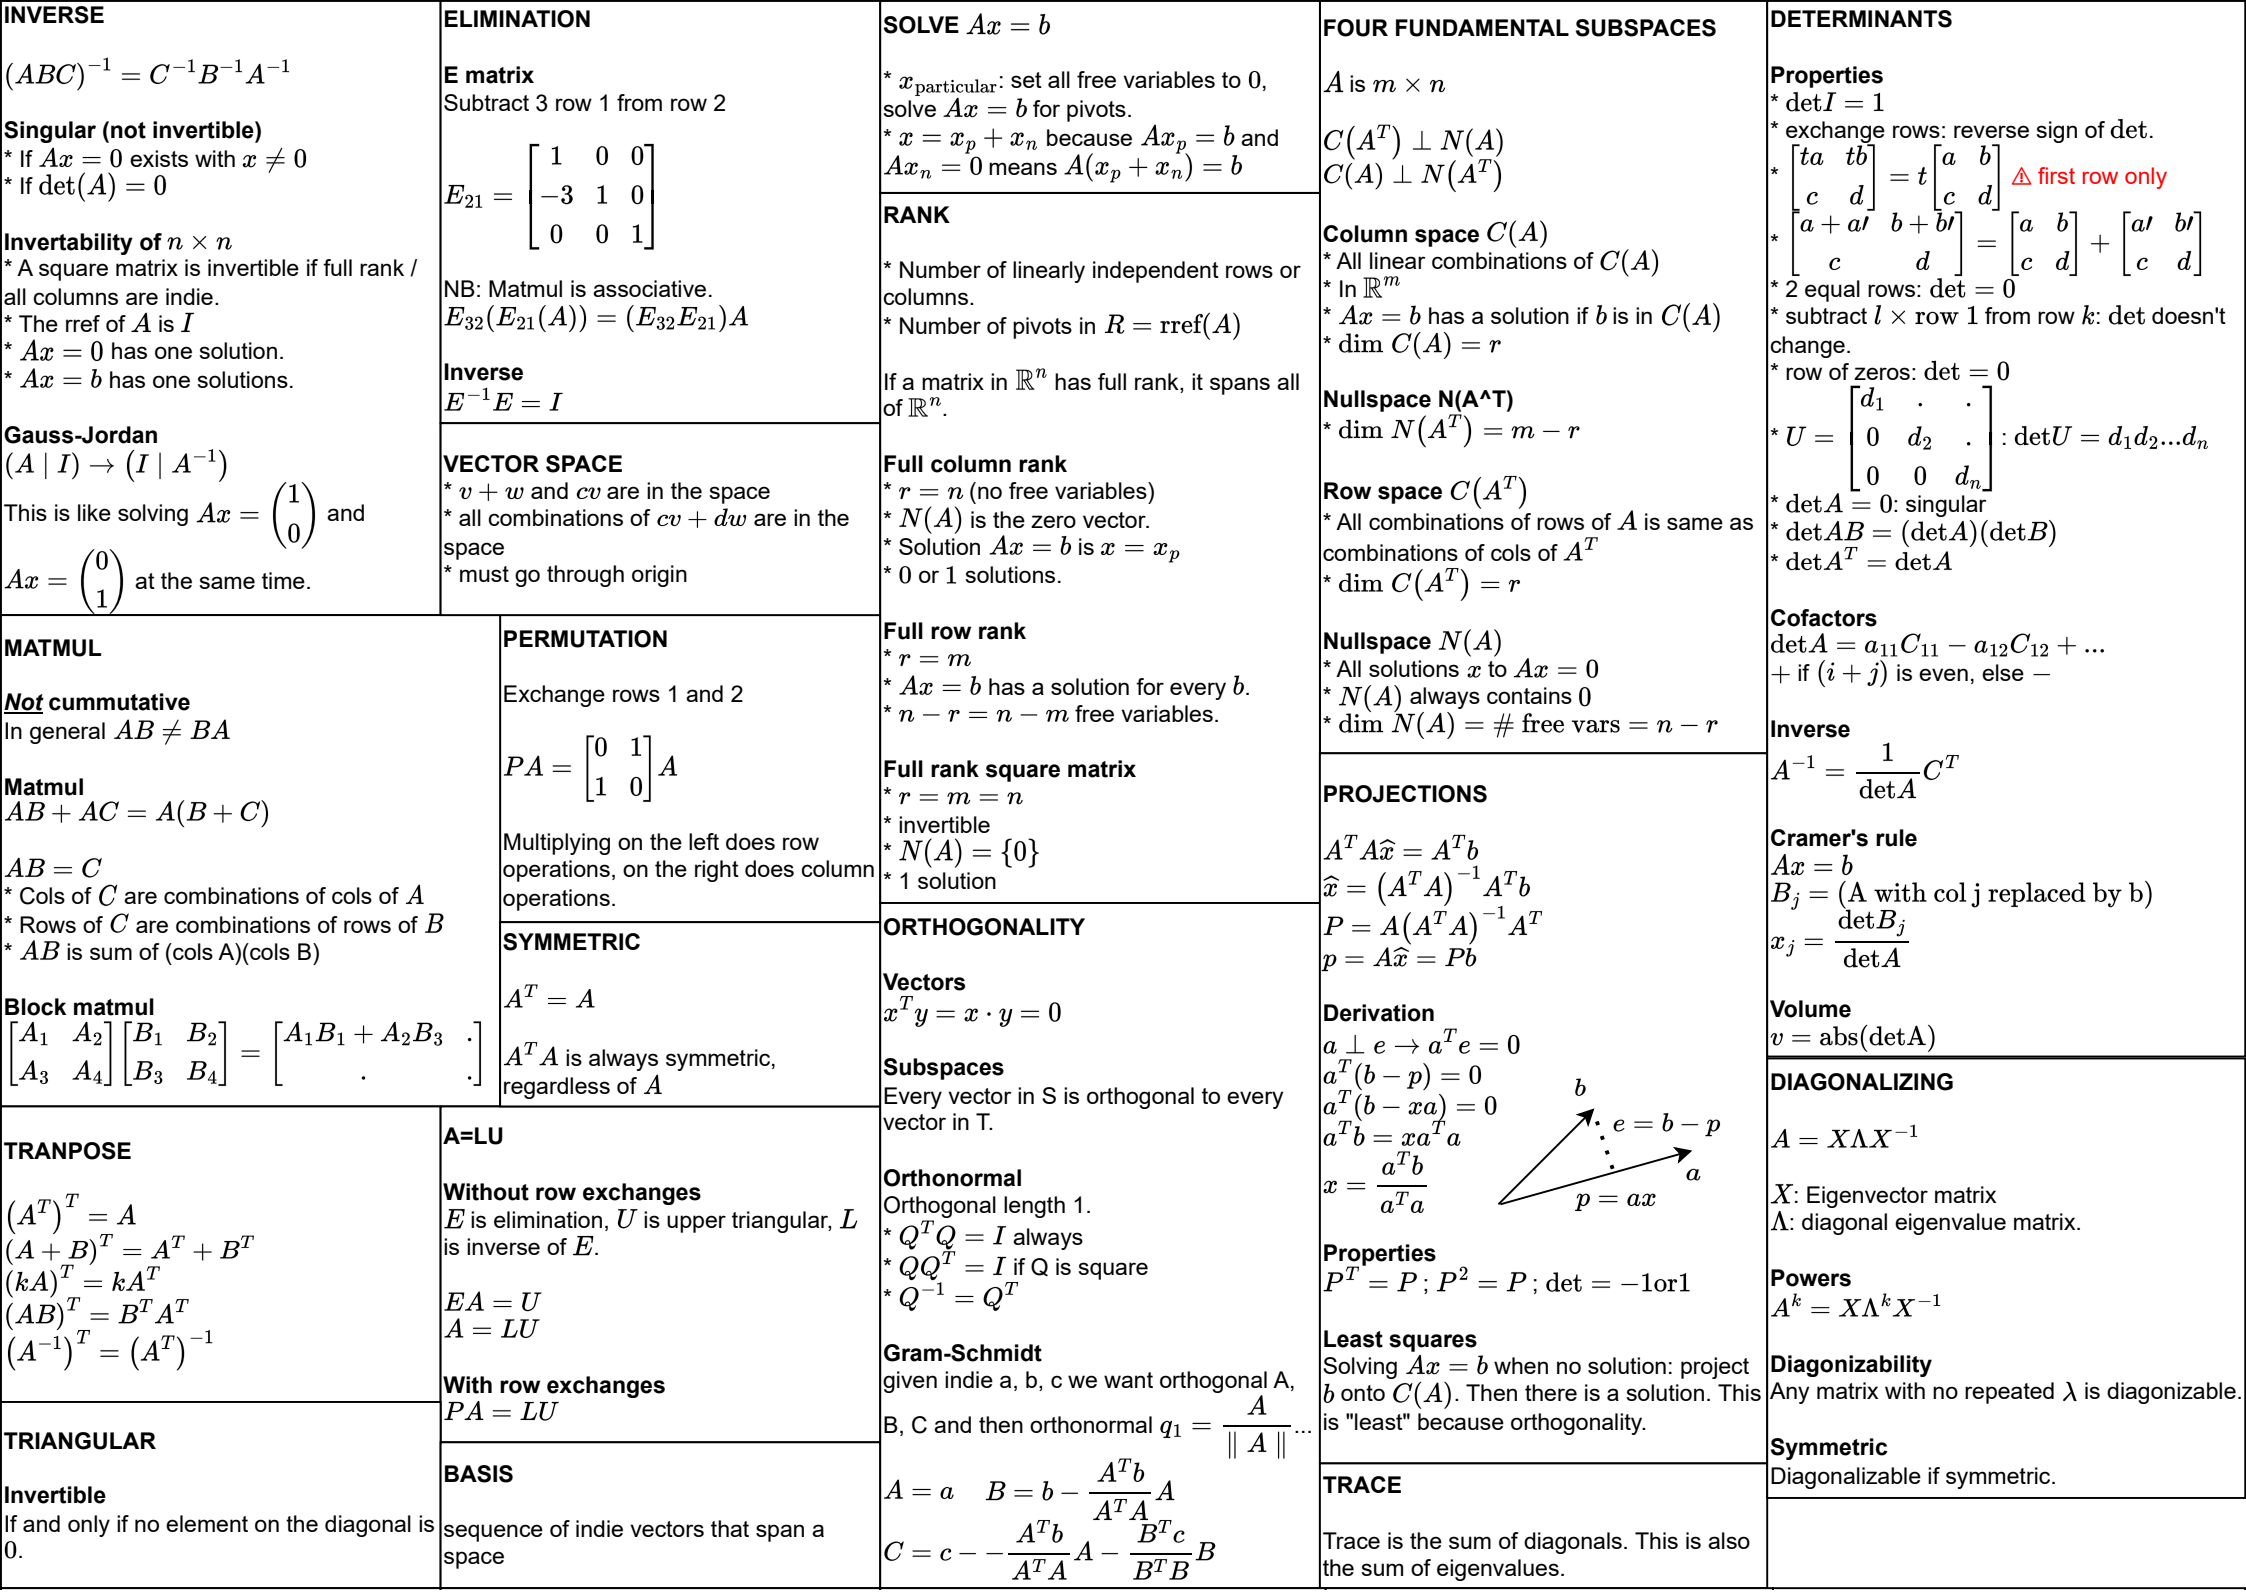 INVERSE
(ABC)⁻¹ = C⁻¹B⁻¹A⁻¹
Singular (not invertible)
* If Ax = 0 exists with x ≠ 0
* If det(A) = 0
Invertability of n × n
* A square matrix is invertible if full rank /
all columns are indie.
* The rref of A is I
* Ax = 0 has one solution.
* Ax = b has one solutions.
Gauss-Jordan
(A | I) → (I | A⁻¹)
This is like solving Ax = (1 0) and
Ax = (0 1) at the same time.
ELIMINATION
E matrix
Subtract 3 row 1 from row 2
E₂₁ = [1 0 0
−3 1 0
0 0 1]
NB: Matmul is associative.
E₃₂(E₂₁(A)) = (E₃₂E₂₁)A
Inverse
E⁻¹E = I
VECTOR SPACE
* v + w and cv are in the space
* all combinations of cv + dw are in the
space
* must go through origin
MATMUL
Not cummutative
In general AB ≠ BA
Matmul
AB + AC = A(B + C)
AB = C
* Cols of C are combinations of cols of A
* Rows of C are combinations of rows of B
* AB is sum of (cols A)(cols B)
Block matmul
[A₁ A₂ A₃ A₄] [B₁ B₂ B₃ B₄] = [A₁B₁ + A₂B₃ . . .]
PERMUTATION
Exchange rows 1 and 2
PA = [0 1 1 0] A
Multiplying on the left does row
operations, on the right does column
operations.
SYMMETRIC
Aᵀ = A
AᵀA is always symmetric,
regardless of A
TRANPOSE
(Aᵀ)ᵀ = A
(A + B)ᵀ = Aᵀ + Bᵀ
(kA)ᵀ = kAᵀ
(AB)ᵀ = BᵀAᵀ
(A⁻¹)ᵀ = (Aᵀ)⁻¹
TRIANGULAR
Invertible
If and only if no element on the diagonal is
0.
A=LU
Without row exchanges
E is elimination, U is upper triangular, L
is inverse of E.
EA = U
A = LU
With row exchanges
PA = LU
BASIS
sequence of indie vectors that span a
space
SOLVE Ax = b
* x_particular: set all free variables to 0,
solve Ax = b for pivots.
* x = x_p + x_n because Ax_p = b and
Ax_n = 0 means A(x_p + x_n) = b
RANK
* Number of linearly independent rows or
columns.
* Number of pivots in R = rref(A)
If a matrix in ℝⁿ has full rank, it spans all
of ℝⁿ.
Full column rank
* r = n (no free variables)
* N(A) is the zero vector.
* Solution Ax = b is x = x_p
* 0 or 1 solutions.
Full row rank
* r = m
* Ax = b has a solution for every b.
* n − r = n − m free variables.
Full rank square matrix
* r = m = n
* invertible
* N(A) = {0}
* 1 solution
ORTHOGONALITY
Vectors
xᵀy = x · y = 0
Subspaces
Every vector in S is orthogonal to every
vector in T.
Orthonormal
Orthogonal length 1.
* QᵀQ = I always
* QQᵀ = I if Q is square
* Q⁻¹ = Qᵀ
Gram-Schmidt
given indie a, b, c we want orthogonal A,
B, C and then orthonormal q₁ = A / ‖ A ‖ ...
A = a B = b − (Aᵀb / AᵀA) A
C = c − − (Aᵀb / AᵀA) A − (Bᵀc / BᵀB) B
FOUR FUNDAMENTAL SUBSPACES
A is m × n
C(Aᵀ) ⊥ N(A)
C(A) ⊥ N(Aᵀ)
Column space C(A)
* All linear combinations of C(A)
* In ℝᵐ
* Ax = b has a solution if b is in C(A)
* dim C(A) = r
Nullspace N(A^T)
* dim N(Aᵀ) = m − r
Row space C(Aᵀ)
* All combinations of rows of A is same as
combinations of cols of Aᵀ
* dim C(Aᵀ) = r
Nullspace N(A)
* All solutions x to Ax = 0
* N(A) always contains 0
* dim N(A) = # free vars = n − r
PROJECTIONS
AᵀAx̂ = Aᵀb
x̂ = (AᵀA)⁻¹Aᵀb
P = A(AᵀA)⁻¹Aᵀ
p = Ax̂ = Pb
Derivation
a ⊥ e → aᵀe = 0
aᵀ(b − p) = 0
aᵀ(b − xa) = 0
aᵀb = xaᵀa
x = aᵀb / aᵀa
b
e = b − p
a
p = ax
Properties
Pᵀ = P ; P² = P ; det = −1or1
Least squares
Solving Ax = b when no solution: project
b onto C(A). Then there is a solution. This
is "least" because orthogonality.
TRACE
Trace is the sum of diagonals. This is also
the sum of eigenvalues.
DETERMINANTS
Properties
* detI = 1
* exchange rows: reverse sign of det.
* [ta tb c d] = t [a b c d] ⚠ first row only
* [a + a′ b + b′ c d] = [a b c d] + [a′ b′ c d]
* 2 equal rows: det = 0
* subtract l × row 1 from row k: det doesn't
change.
* row of zeros: det = 0
* U = [d₁ . . 0 d₂ . 0 0 dₙ] : detU = d₁d₂...dₙ
* detA = 0: singular
* detAB = (detA)(detB)
* detAᵀ = detA
Cofactors
detA = a₁₁C₁₁ − a₁₂C₁₂ + ...
+ if (i + j) is even, else −
Inverse
A⁻¹ = 1 / detA Cᵀ
Cramer's rule
Ax = b
B_j = (A with col j replaced by b)
x_j = detB_j / detA
Volume
v = abs(detA)
DIAGONALIZING
A = XΛX⁻¹
X: Eigenvector matrix
Λ: diagonal eigenvalue matrix.
Powers
Aᵏ = XΛᵏX⁻¹
Diagonizability
Any matrix with no repeated λ is diagonizable.
Symmetric
Diagonalizable if symmetric.